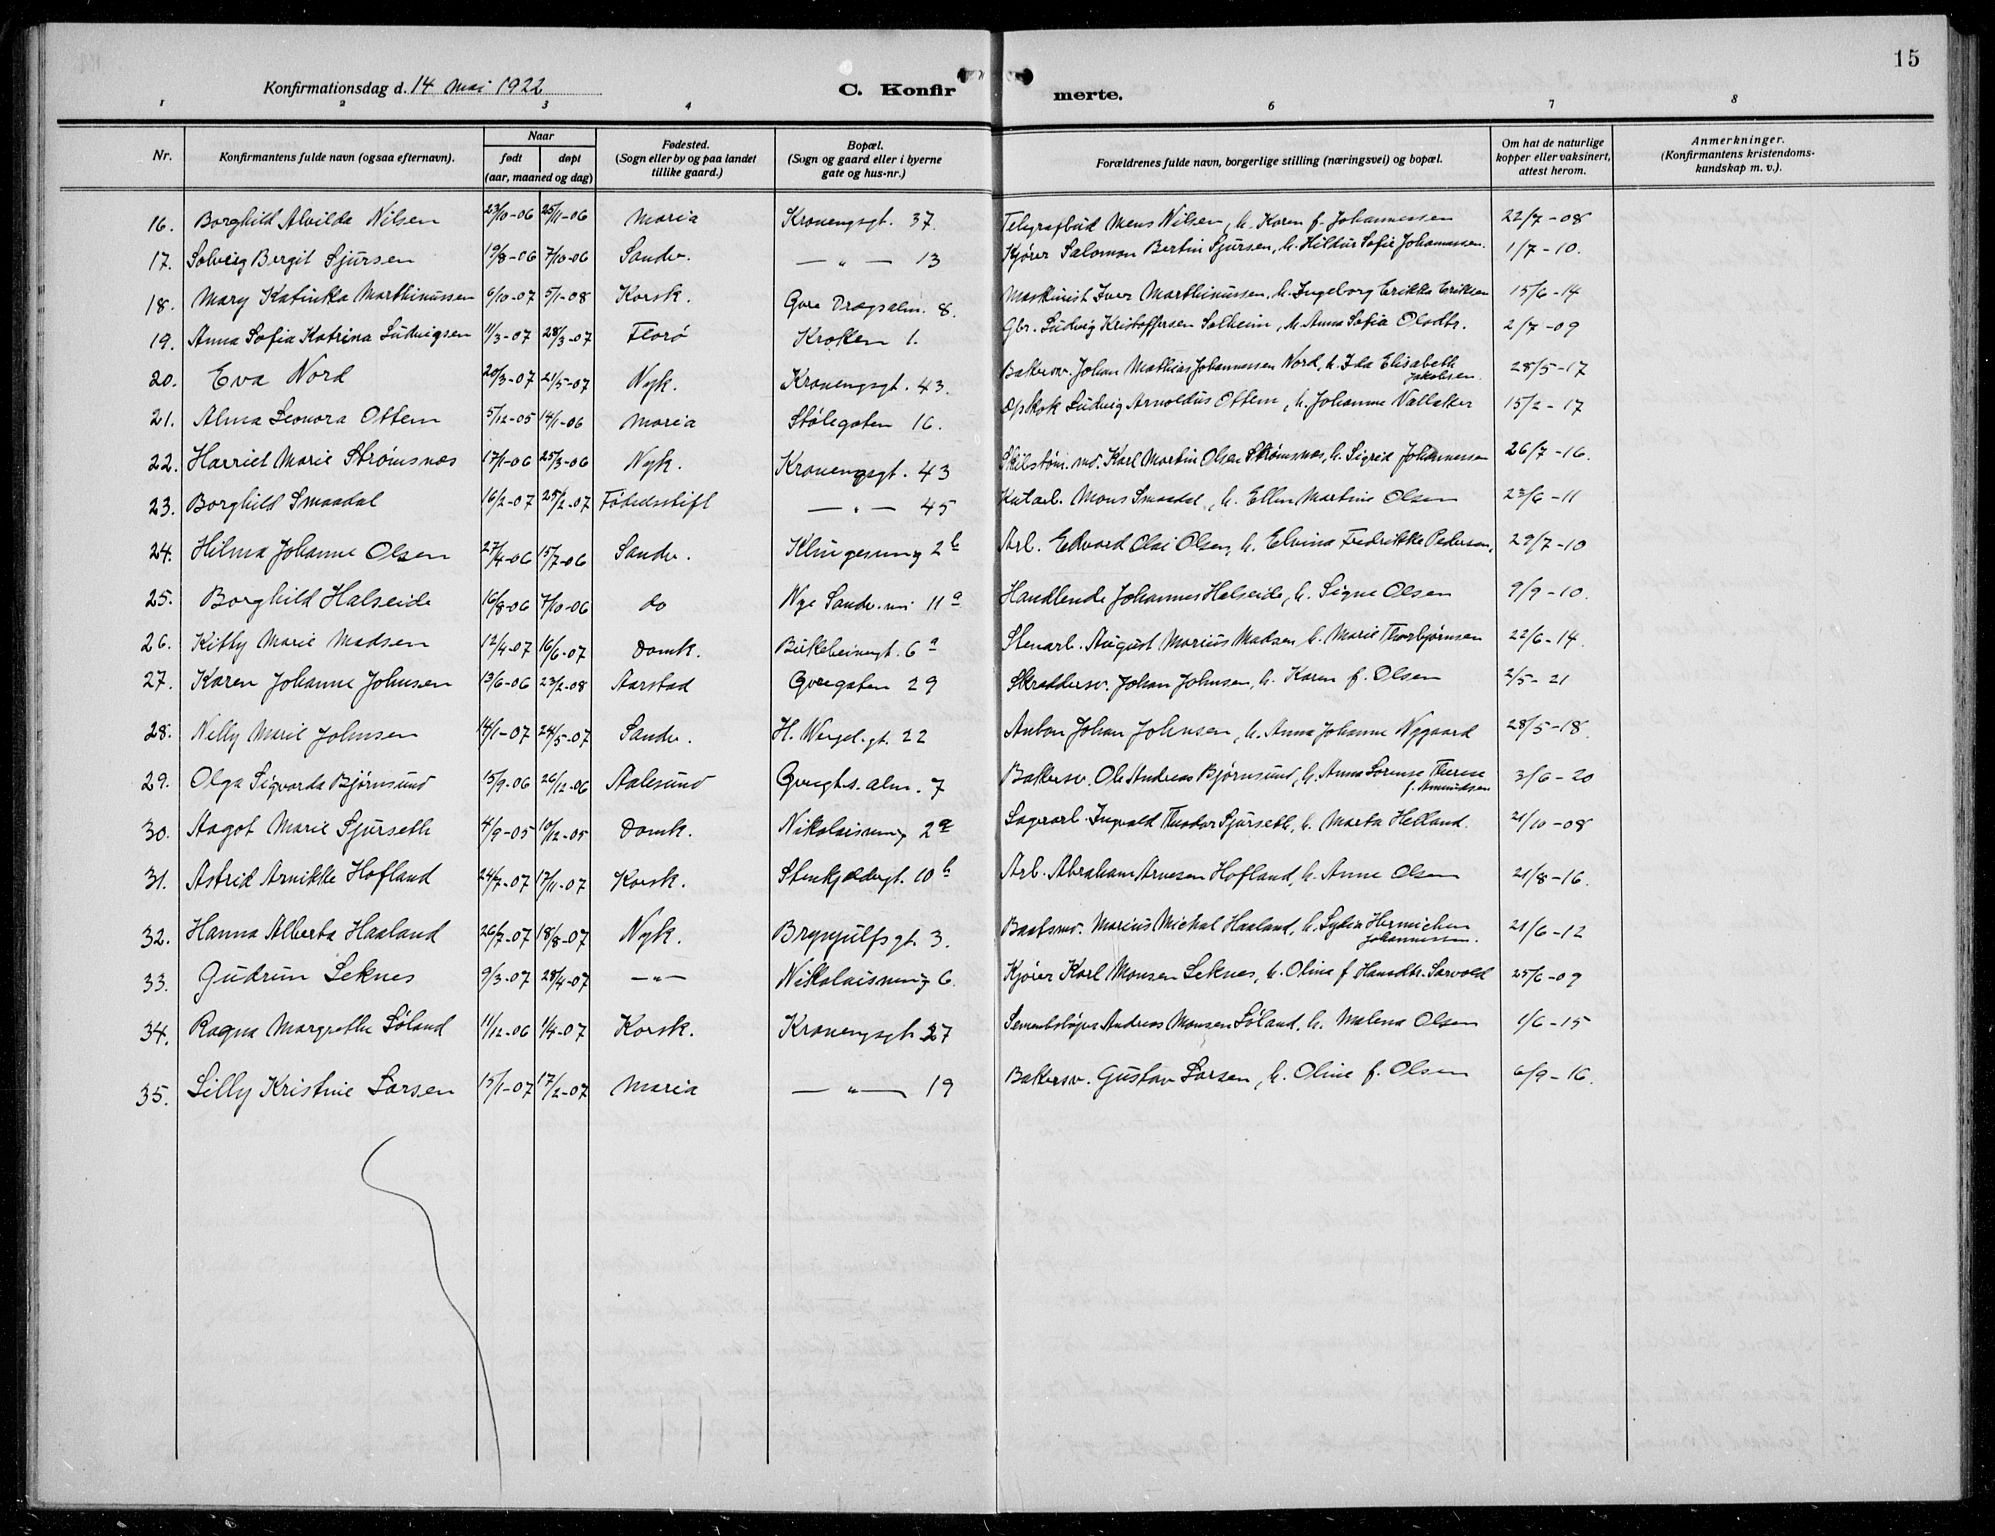 15
Konfirmationsdag d. 14 mai 1922
C. Konfir merte.
1 2 3 4 6 7 8
Nr. Konfirmantens fulde navn (ogsaa efternavn). Naar født døpt (aar, maaned og dag) Fødested. (Sogn eller by og paa landet tillike gaard.) Bopæl. (Sogn og gaard eller i byerne gate og hus-nr.) Forældrenes fulde navn, borgerlige stilling (næringsvei) og bopæl. Om hat de naturlige kopper eller vaksinert, attest herom. Anmerkninger. (Konfirmantens kristendoms-kundskap m. v.).
16. Borghild Alvilda Nilsen 23/10-06 25/11-06 Maria Kronengsgt. 37. Telegrafbud Mons Nilsen, h. Karen f. Johannessen 22/7-08
17. Solveig Bergit Sjursen 19/8-06 7/10-06 Sandv. — " — 13 Kjører Salomon Bertin Sjursen, h. Hildur Sofie Johannessen. 1/7-10.
18. Mary Katinka Marthinussen 6/10-07 5/1-08 Korsk. Øvre Dragsalm. 8. Maskinist Iver Marthinussen, h. Ingeborg Erikka Eriksen 15/6-14
19. Anna Sofia Katrina Ludvigsen 11/3-07 28/3-07 Florø Kroken 1. Gbr. Ludvig Kristoffersen Solheim, h. Anna Sofia Olsdtr. 2/7-09
20. Eva Nord 20/3-07 21/5-07 Nyk. Kronengsgt. 43. Bakersv. Johan Mathias Johannessen Nord, h. Ida Elisabeth Jakobsen. 28/5-17
21. Alma Leonora Ottem 5/12-05 14/1-06 Maria Stølegaten 16. Dpskok Ludvig Arnoldus Ottem, h. Johanne 15/2-17
22. Harriet Marie Strømsnæs 17/1-06 25/3-06 Nyk. Kronengsgt. 43 Karl Martin Olsen Strømsnæs, h. Sigrid Johannessen 26/7-16.
23. Borghild Smaadal 16/2-07 25/2-07 Fødselsstift — " — 45 Mons Smaadal, h. Ellen Martine Olsen 23/6-11
24. Hilma Johanne Olsen 27/4-06 15/7-06 Sandv. 2b Arb. Edvard Olai Olsen, h. Elvina Fredrikke Pedersen, 29/7-10
25. Borghild Halseide 16/8-06 7/10-06 do Nye Sandv. vei 11a Handlende Johannes Halseide, h. Signe Olsen 9/9-10.
26. Kitty Marie Madsen 12/4-07 16/6-07 Domk. Birkebeinergt. 6a Stenarb. August Marius Madsen, h. Marie Thorbjørnsen 22/6-14.
27. Karen Johanne Johnsen 13/6-06 23/2-08 Aarstad Øvregaten 29 Skreddersv. Johan Johnsen, h. Karen f. Olsen 2/5-21
28. Nelly Marie Johnsen 14/1-07 24/5-07 Sandv. H. Wergel.gt. 22 Johan Johnsen, h. Anna Johanne Nygaard 28/5-18.
29. Olga Sigvarda Bjørnsund 15/9-06 26/12-06 Aalesund alm. 7 Bakersv. Ole Andreas Bjørnsund, h. Anna Lorense Therese f. Amundsen 3/6-20
30. Aagot Marie Sjurseth 4/9-05 10/12-05 Domk. Nikolaismug 2a Lagerarb. Ingvald Theodor Sjurseth, h. Marta Helland. 21/10-08
31. Astrid Arnikke Hofland 24/7-07 17/11-07 Korsk. Stenkjeldergt. 10b Arb. Abraham Arnesen Hofland, h. Anne Olsen 21/8-16.
32. Hanna Alberta Haaland 26/7-07 18/8-07 Nyk. Brynjulfsgt. 3. Baatsmd. Marius Mickal Haaland, h. Lydia Hermichen Johannessen. 21/6-12
33. Gudrun Leknes 9/3-07 28/4-07 — " — Nikolaismug 6. Kjører Karl Monsen Leknes, h. Olina f. Hansdtr. Sarvold 25/6-09
34. Ragna Margrethe Løland 11/12-06 1/4-07 Korsk. Kronengsgt. 27 Sementstøper Andreas Monsen Løland, h. Malena Olsen 1/6-15
35. Lilly Kristine Larsen 15/1-07 17/2-07 Maria — " — 19 Bakersv. Gustav Larsen, h. Oline f. Olsen 6/9-16.